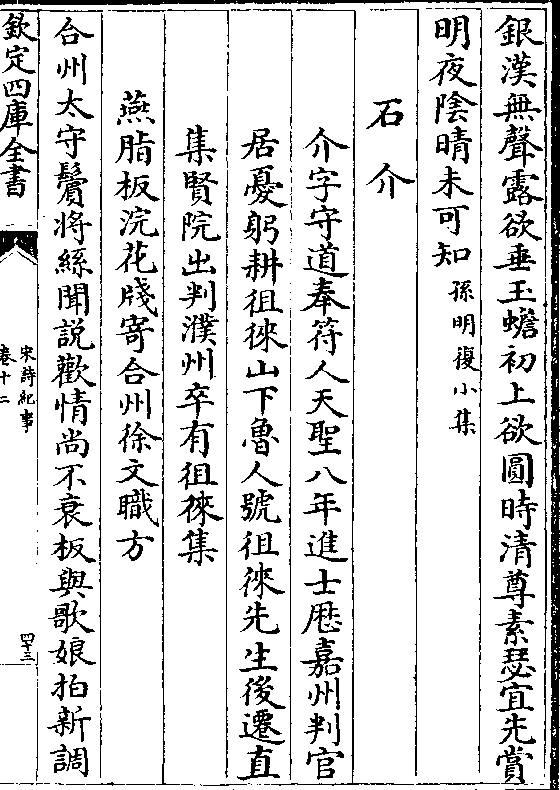 銀漢無聲露欲垂玉蟾初上欲圓時清尊素瑟宜先賞
明夜陰晴未可知 孫明復小集
石介
介字守道奉符人天聖八年進士歷嘉州判官
居憂躬耕徂徠山下魯人號徂徠先生後遷直
集賢院出判濮州卒有徂徠集
燕脂板浣花牋寄合州徐文職方
合州太守鬢將絲聞說歡情尚不衰板與歌娘拍新調
欽定四庫全書
宋詩紀事
卷十二
四十三